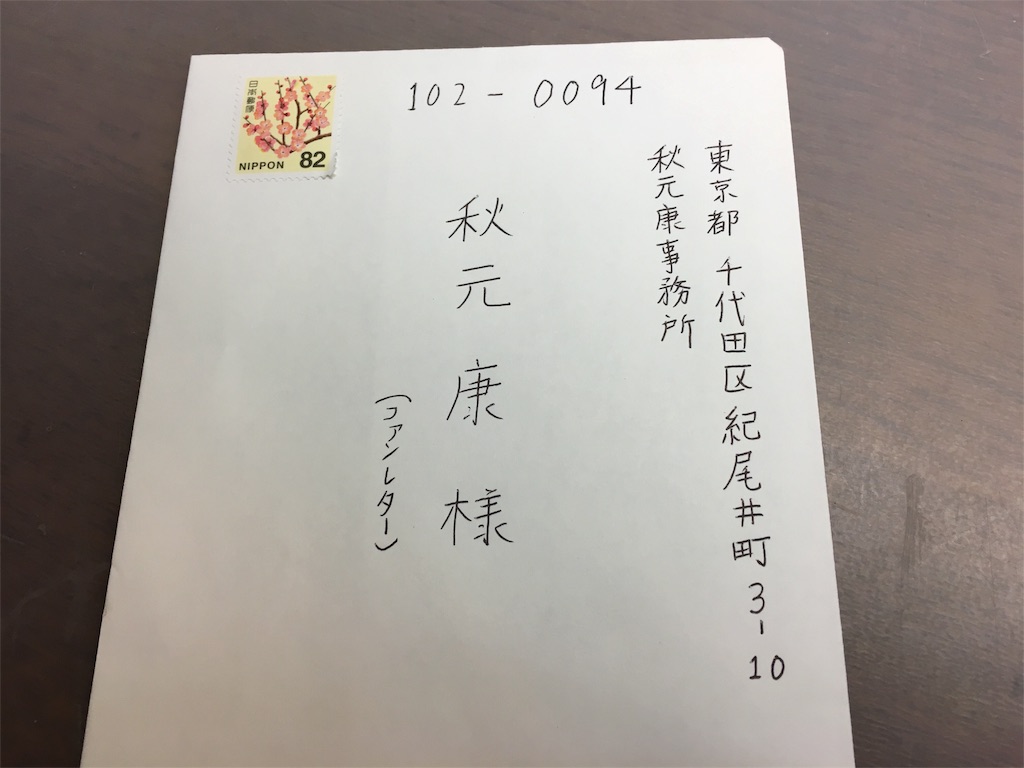 日本郵便
NIPPON 82
102-0094
東京都 千代田区 紀尾井町 3-10
秋元康事務所
秋元 康 様
(ファンレター)